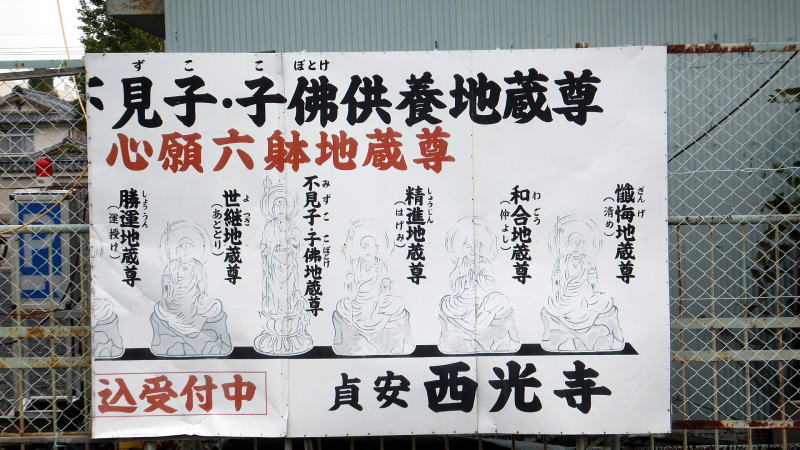 不見子・子佛供養地蔵尊
ずここぼとけ
心願六躰地蔵尊
勝運地蔵尊
しょううん
(運授け)
世継地蔵尊
よつぎ
(あととり)
不見子・子佛地蔵尊
みずここぼとけ
精進地蔵尊
しょうじん
(はげみ)
和合地蔵尊
わごう
(仲よし)
懺悔地蔵尊
ざんげ
(清め)
込受付中
貞安西光寺